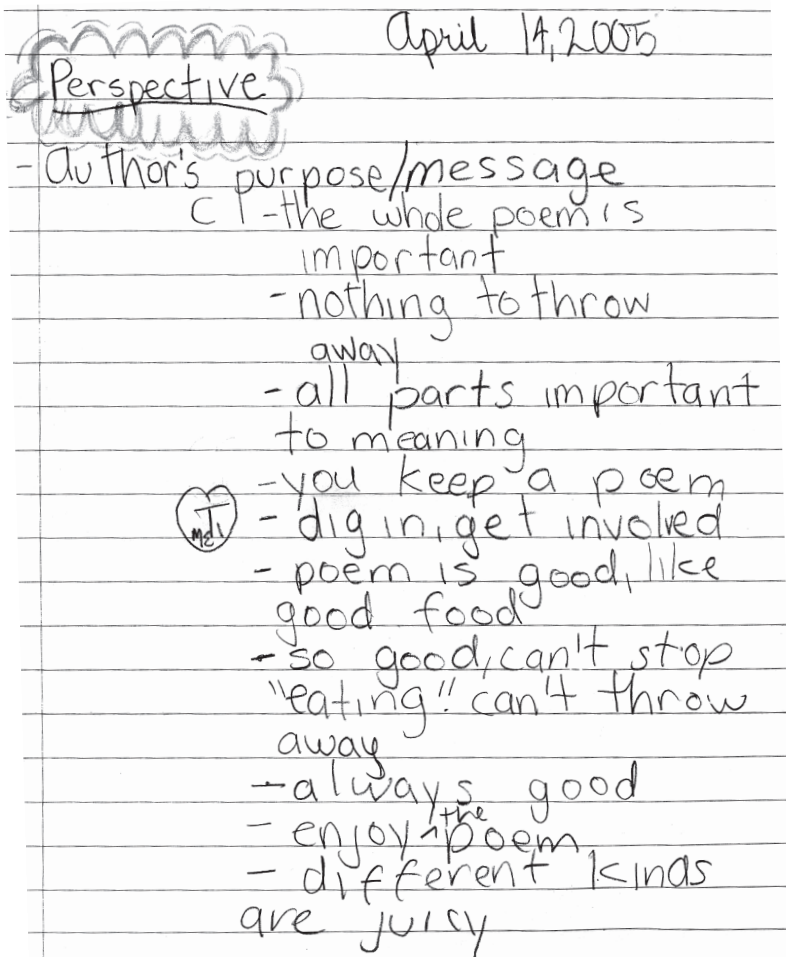 April 14, 2005
Perspective
- author's purpose/message
C T - the whole poem is
important
- nothing to throw
away
- all parts important
to meaning
- you keep a poem
- dig in, get involved
- poem is good, like
good food
- so good, can't stop
"eating" can't throw
away
- always good
- enjoy ^the poem
- different kinds
are juicy